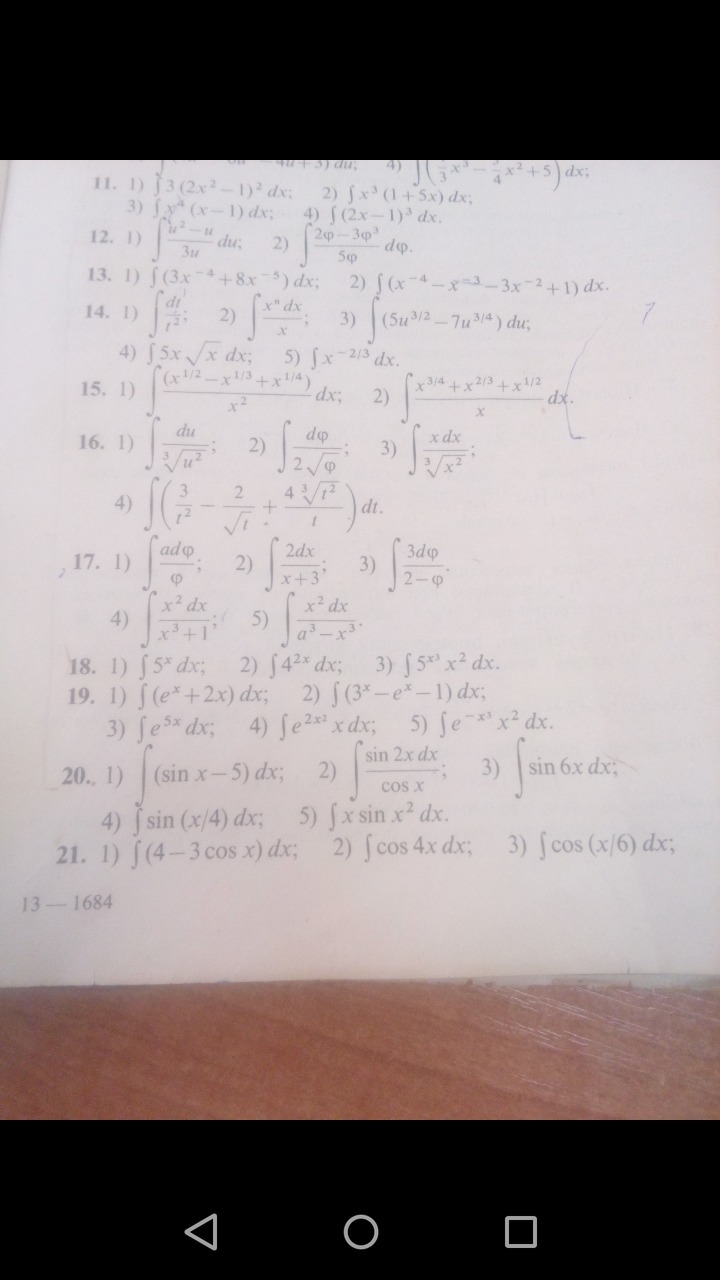 4u+3) du; 4) ∫(1/3 x³ − 3/4 x² + 5) dx;
11. 1) ∫3 (2x² − 1)² dx; 2) ∫x³ (1 + 5x) dx;
3) ∫x⁴ (x − 1) dx; 4) ∫(2x − 1)³ dx.
12. 1) ∫ (u² − u)/(3u) du; 2) ∫ (2φ − 3φ³)/(5φ) dφ.
13. 1) ∫(3x⁻⁴ + 8x⁻⁵) dx; 2) ∫(x⁻⁴ − x⁻³ − 3x⁻² + 1) dx.
14. 1) ∫ dt/t²; 2) ∫ xⁿ dx/x; 3) ∫(5u^{3/2} − 7u^{3/4}) du;
4) ∫5x √x dx; 5) ∫x^{−2/3} dx.
15. 1) ∫ (x^{1/2} − x^{1/3} + x^{1/4})/x² dx; 2) ∫ (x^{3/4} + x^{2/3} + x^{1/2})/x dx.
16. 1) ∫ du/∛u²; 2) ∫ dφ/(2√φ); 3) ∫ x dx/∛x²;
4) ∫(3/t² − 2/√t + 4∛t²/t) dt.
17. 1) ∫ adφ/φ; 2) ∫ 2dx/(x+3); 3) ∫ 3dφ/(2−φ).
4) ∫ x² dx/(x³+1); 5) ∫ x² dx/(a³−x³).
18. 1) ∫5ˣ dx; 2) ∫4^{2x} dx; 3) ∫5^{x³} x² dx.
19. 1) ∫(eˣ + 2x) dx; 2) ∫(3ˣ − eˣ − 1) dx;
3) ∫e^{5x} dx; 4) ∫e^{2x²} x dx; 5) ∫e^{−x³} x² dx.
20. 1) ∫(sin x − 5) dx; 2) ∫ sin 2x dx/cos x; 3) ∫sin 6x dx;
4) ∫sin (x/4) dx; 5) ∫x sin x² dx.
21. 1) ∫(4 − 3 cos x) dx; 2) ∫cos 4x dx; 3) ∫cos (x/6) dx;
13 — 1684